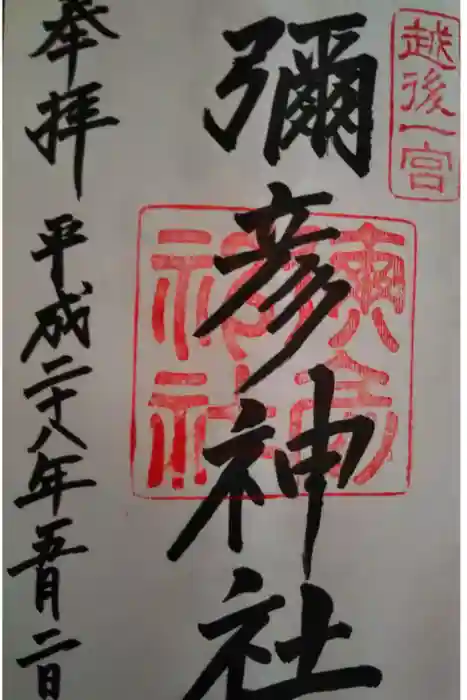 越後一宮
彌彦神社
奉拝
平成二十八年五月二日